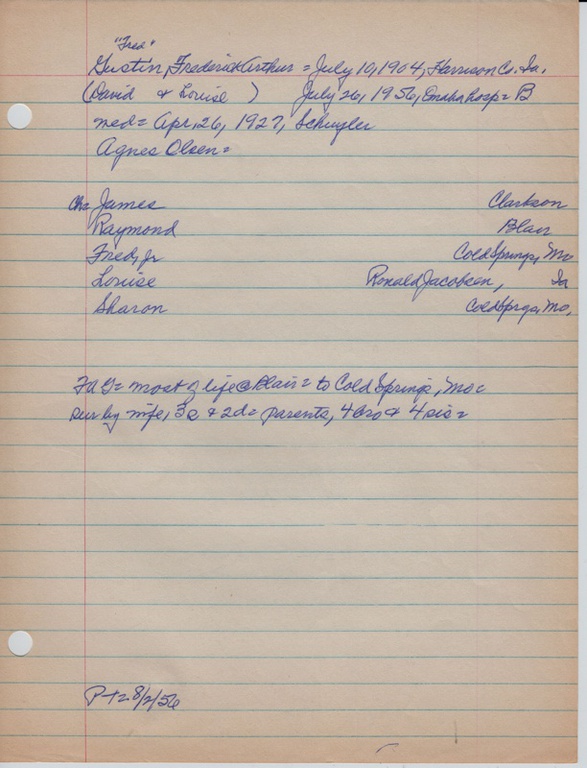 "Fred"
Gustin, Frederick Arthur = July 10, 1904, Harrison Co. Ia.
(David & Louise ) July 26, 1956, Omaha hosp = B
med = Apr. 26, 1927, Schuyler
Agnes Olsen =
Ch = James Clarkson
Raymond Blair
Fred, Jr Cold Springs, Mo
Louise Ronald Jacobsen, Ia
Sharon Cold Sprgs, Mo.
= most of life @ Blair = to Cold Springs, Mo =
sur by wife, 3s & 2d = parents, 4 bro & 4 sis =
P-T = 8/2/56